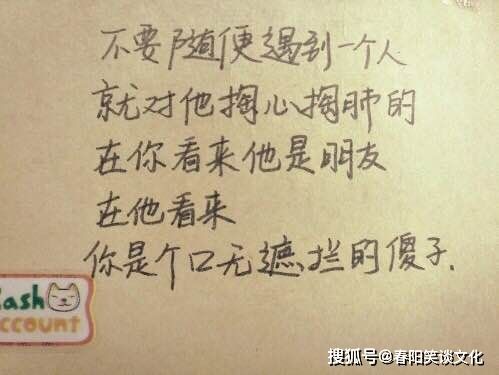 不要随便遇到一个人
就对他掏心掏肺的
在你看来他是朋友
在他看来
你是个口无遮拦的傻子.
Cash
account
搜狐号@春阳笑谈文化